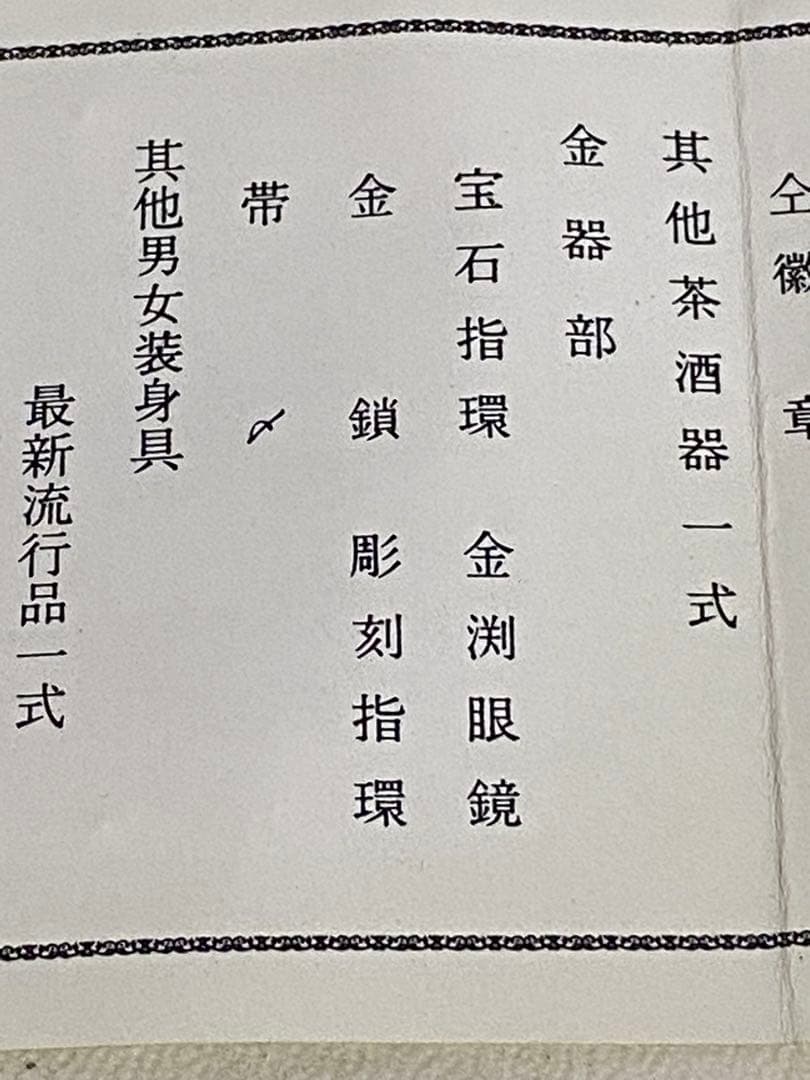 仝徽章
其他茶酒器一式
金器部
宝石指環 金渕眼鏡
金鎖 彫刻指環
帯〆
其他男女装身具
最新流行品一式